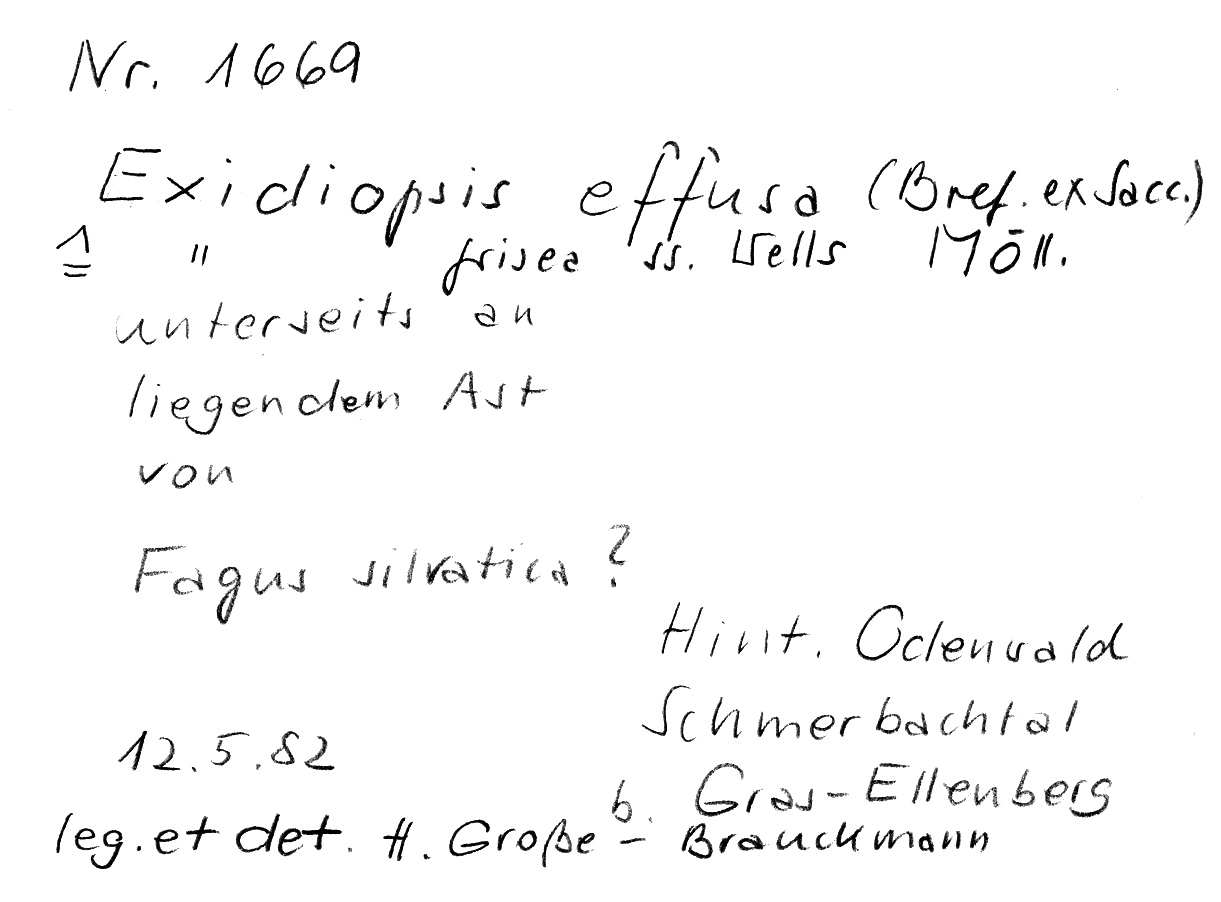 Nr. 1669
Exidiopsis effusa (Bref. ex Sacc.)
1 " grisea ss. Wells Möll.
unterseits an
liegendem Ast
von
Fagus silvatica ?
Hint. Odenwald
Schmerbachtal
12.5.82
b. Gras-Ellenberg
leg. et det. H. Große - Brauckmann